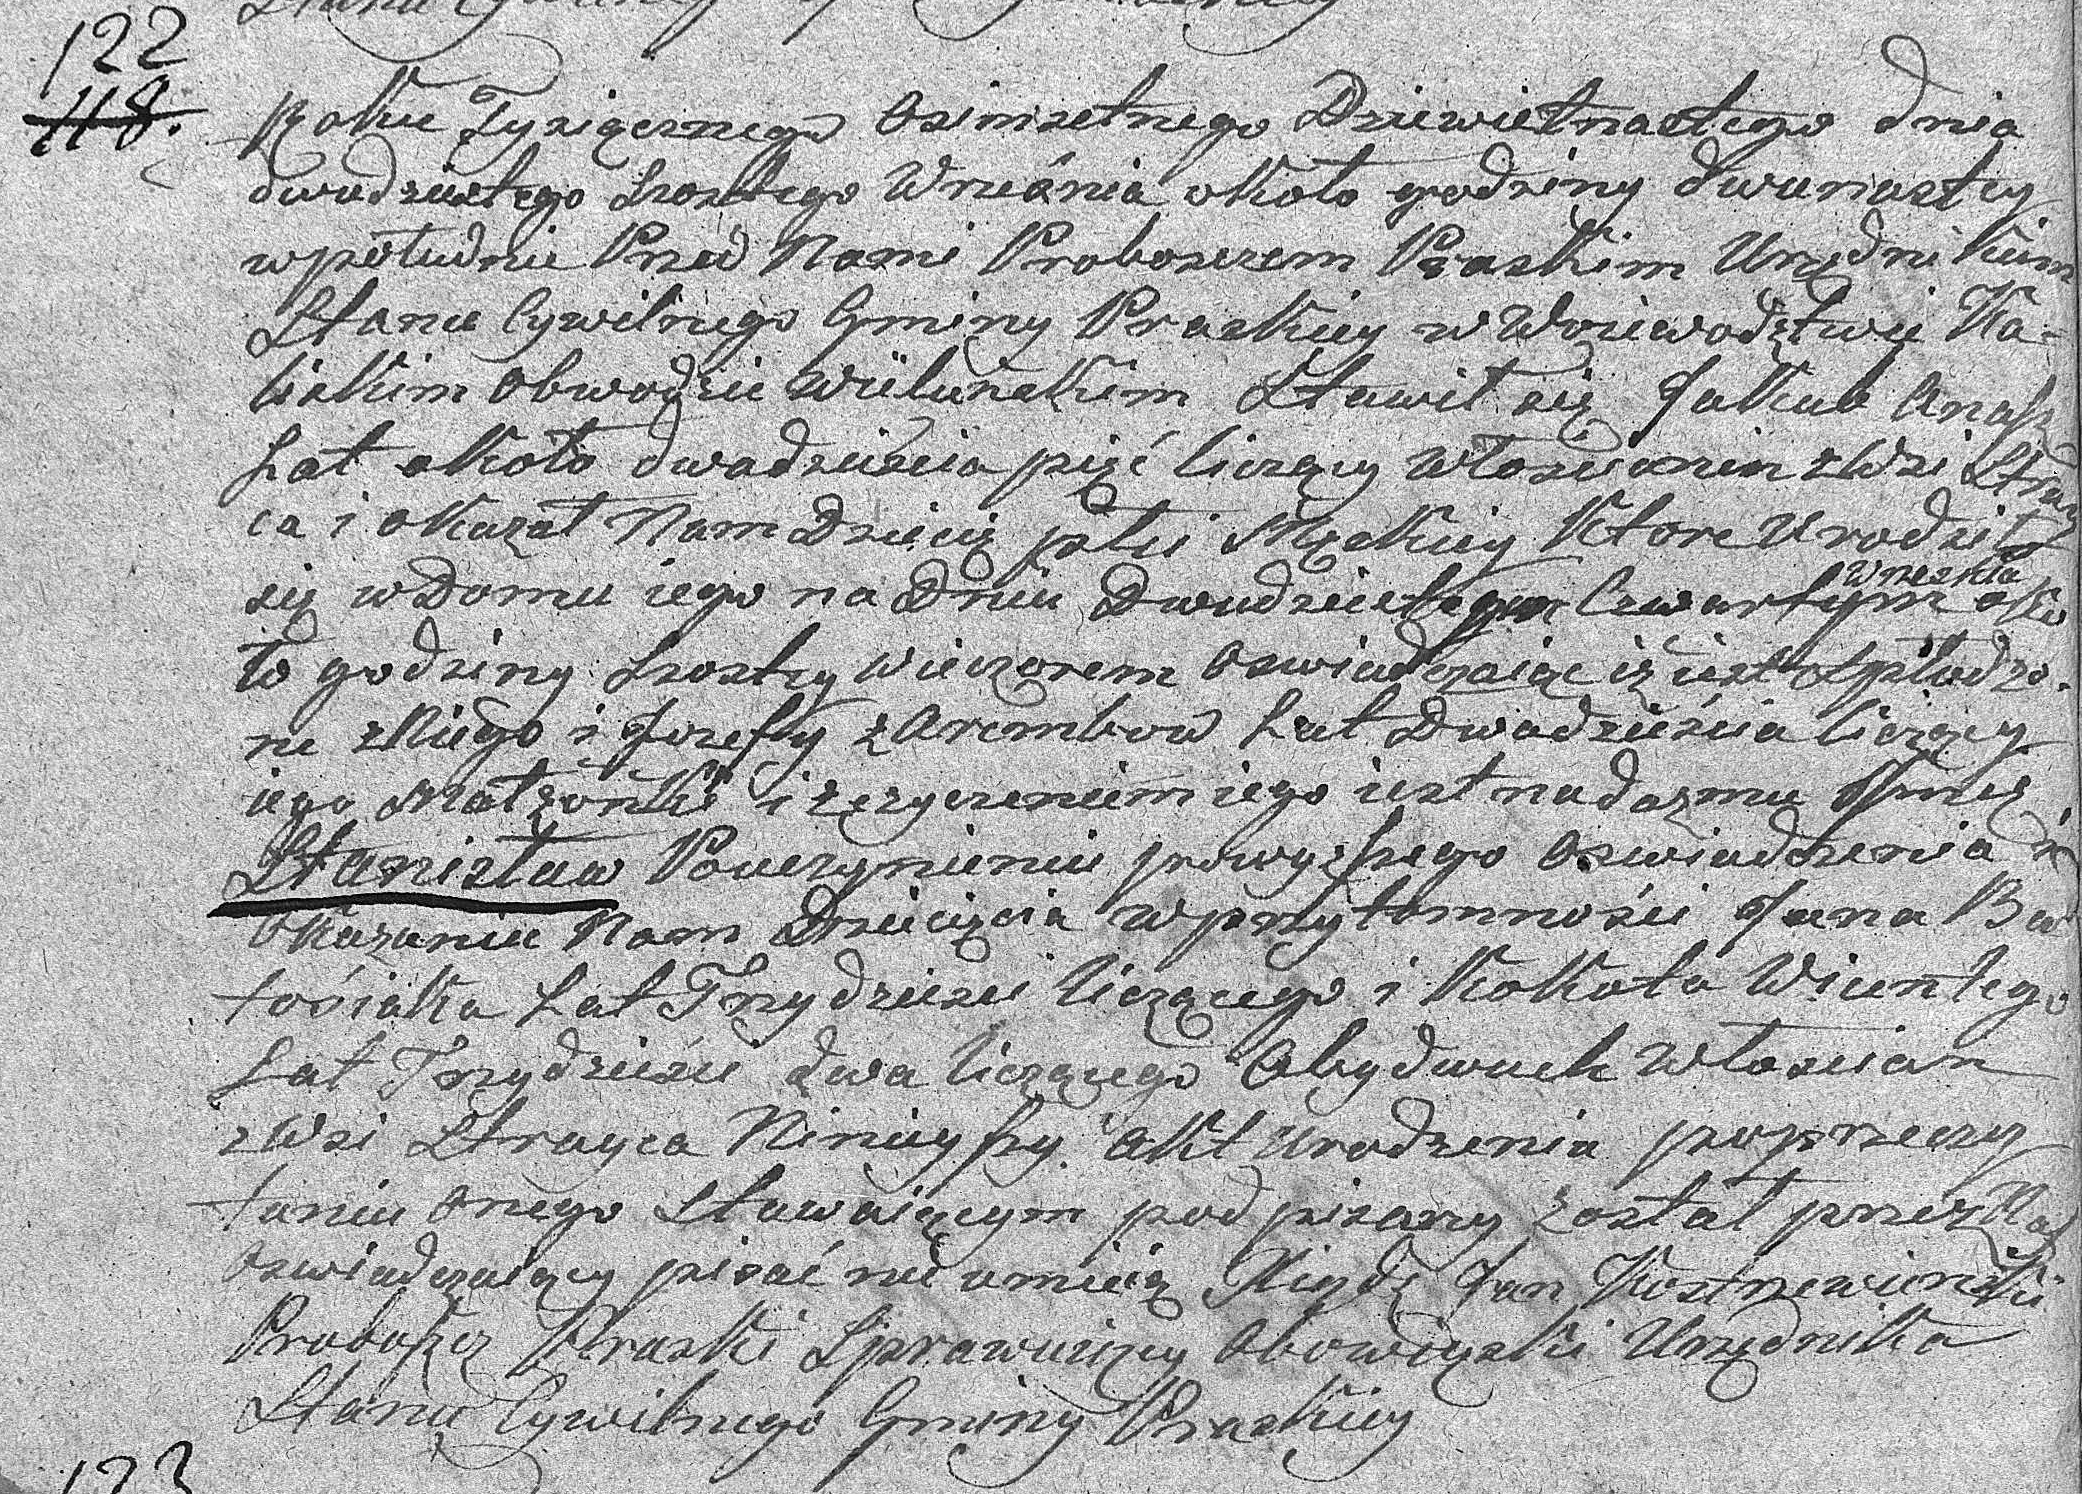 Stanu Cywilnego Gminy Praskiey
122
118.
Roku Tysiącznego Osimsetnego Dziewietnastego dnia
dwudziestego szostego Września około godziny dwunastey
wpołudnie Przed Nami Proboszczem Praskim Urzędnikiem
Stanu Cywilnego Gminy Praskiey w Woiewodztwie Ka-
liskim Obwodzie Wieluńskim Stawił się Jakub
Lat około dwadzieścia pięć liczący Włościanin zWsi Stray
ca i okazał Nam Dziecię płci Męskiey Ktore Urodziło
się wDomu iego na Dniu Dwudziestym Czwartym Wrzesnia oko
ło godziny szostey wieczorem oswiadczaiąc iż iest spłodzo-
ne zNiego i Jozefy zAręmbow Lat Dwadzieścia liczący
iego Małżonki i zeżyczeniem iego iest nadać mu Imię
Stanisław Pouczynieniu powyższego oswiadczenia i
Okazaniu Nam Dziecięcia wprzytomności Jana Ba
tosiaka Lat Trzydzieści liczącego i Kokota Wicentego
Lat Trzydzieści dwa liczącego Obydwuch Włoscian
zWsi Strayca Ninieyszy Akt Urodzenia poprzeczy
taniu onego Stawaiącym podpisany został przez Nas
Oswiadczaiący pisać nie umieią Xiądz Jan
Proboszcz Praski Sprawuiący Obowiązki Urzędnika
Stanu Cywilnego Gminy Praskiey
123